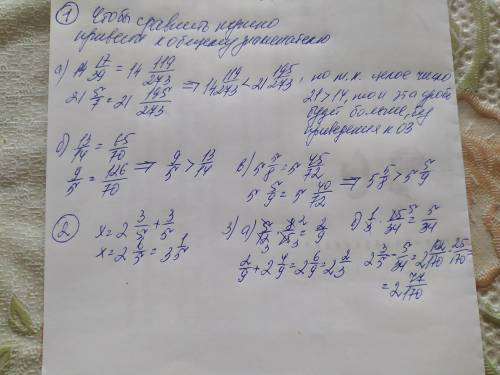 ① Чтобы сравнить нужно
привести к общему знаменателю
а) 14 17/39 = 14 119/273 ⇒ 14 119/273 < 21 195/273, но т.к. целое число
21 5/7 = 21 195/273
21 > 14, то и эта дробь
будет больше, без
приведения к ОЗ
б) 13/14 = 65/70
9/5 = 126/70 ⇒ 9/5 > 13/14
в) 5 5/8 = 5 45/72
5 5/9 = 5 40/72 ⇒ 5 5/8 > 5 5/9
② x = 2 3/5 + 3/5
x = 2 6/5 = 3 1/5
3) а)
= 2/9
2/9 + 2 4/9 = 2 6/9 = 2 2/3
б) 1/3 · 15/34 = 5/34
2 3/5 - 5/34 = 2 102/170 - 25/170
= 2 77/170